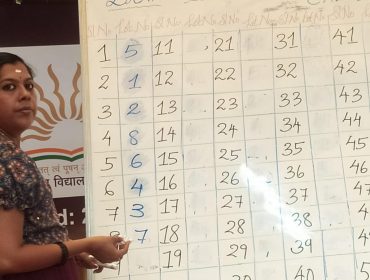 Sl No Sl No Sl No
1 5 11 21 31 41
2 1 12 22 32 42
3 2 13 23 33 43
4 8 14 24 34 44
5 6 15 25 35 45
6 4 16 26 36 46
7 3 17 27 37 47
7 18 28 38 48
19 29 39 49
30 40
तत् त्वं पूषन्
विद्याल
d: 2